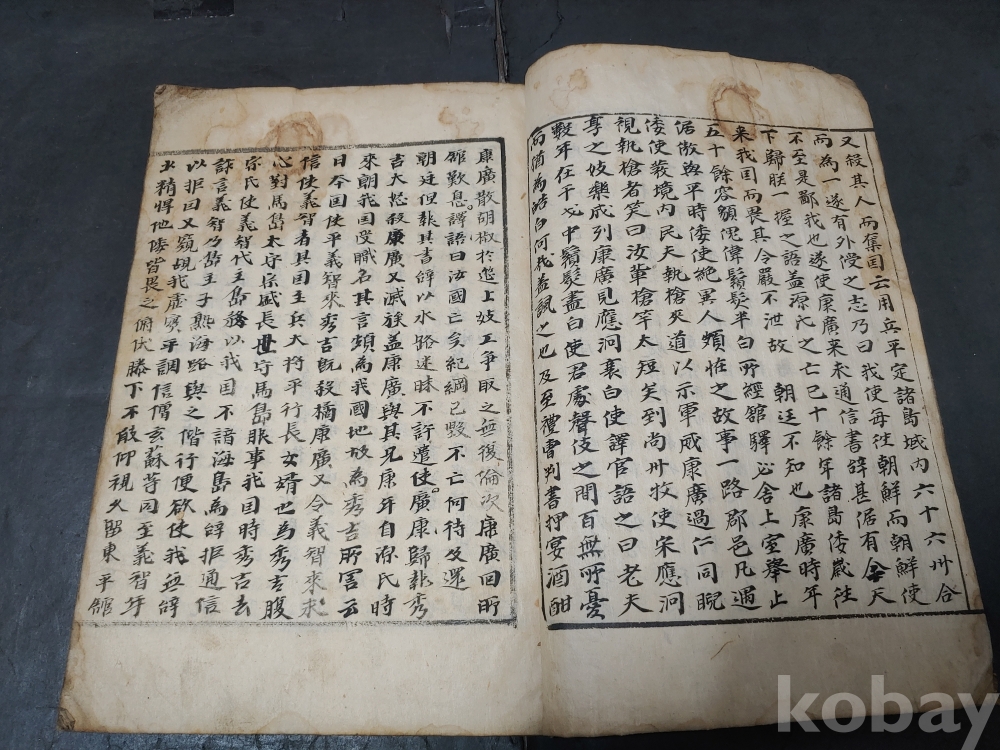 又殺其人而奪国云用兵平定諸島域內六十六州合
而為一遂有外侵之志乃曰我使每往朝鮮而朝鮮使
不至是鄙我也遂使康廣来来通信書辞甚倨有今天
下歸朕一握之語盖源氏之亡已十餘年諸島倭歲往
来我国而畏其令嚴不泄故 朝廷不知也康廣時年
五十餘容貌傀偉鬚髮半白所經舘驛必舍上室舉止
倨傲與平時倭使絶異人頗恠之故事一路郡邑凡遇
倭使發境內民夫執槍夾道以示軍威康廣過仁同睨
視執槍者笑曰汝軰槍竿太短矣到尚州牧使宋應泂
享之妓樂成列康廣見應泂衰白使譯官語之曰老夫
數年在干戈中鬚髮盡白使君處聲伎之間百無所憂
而猶為皓白何哉盖諷之也及至禮曺判書押宴酒酣
康廣散胡椒於筵上妓工争取之無後倫次康廣回所
舘歎息譯語曰汝國亡矣紀綱已毀不亡何待及還
朝廷但報其書辞以水路迷昧不許遣使廣康歸報秀
吉大怒殺康廣又滅族盖康廣與其兄康年自源氏時
來朝我国受職名其言頗為我國地故為秀吉所害云
日本国使平義智來秀吉既殺橘康廣又令義智來求
信使義智者其国主兵大将平行長女婿也為秀吉腹
心對馬島太守宗盛長世守馬島服事我国時秀吉去
宗氏使義智代主島務以我国不諳海島為辞拒通信
詐言義智乃島主子熟海路與之偕行便欲使我無辞
以拒曰又窺覘我虛实平調信僧玄蘇等同至義智年
少精悍他倭皆畏之俯伏膝下不敢仰視久留東平舘
kobay